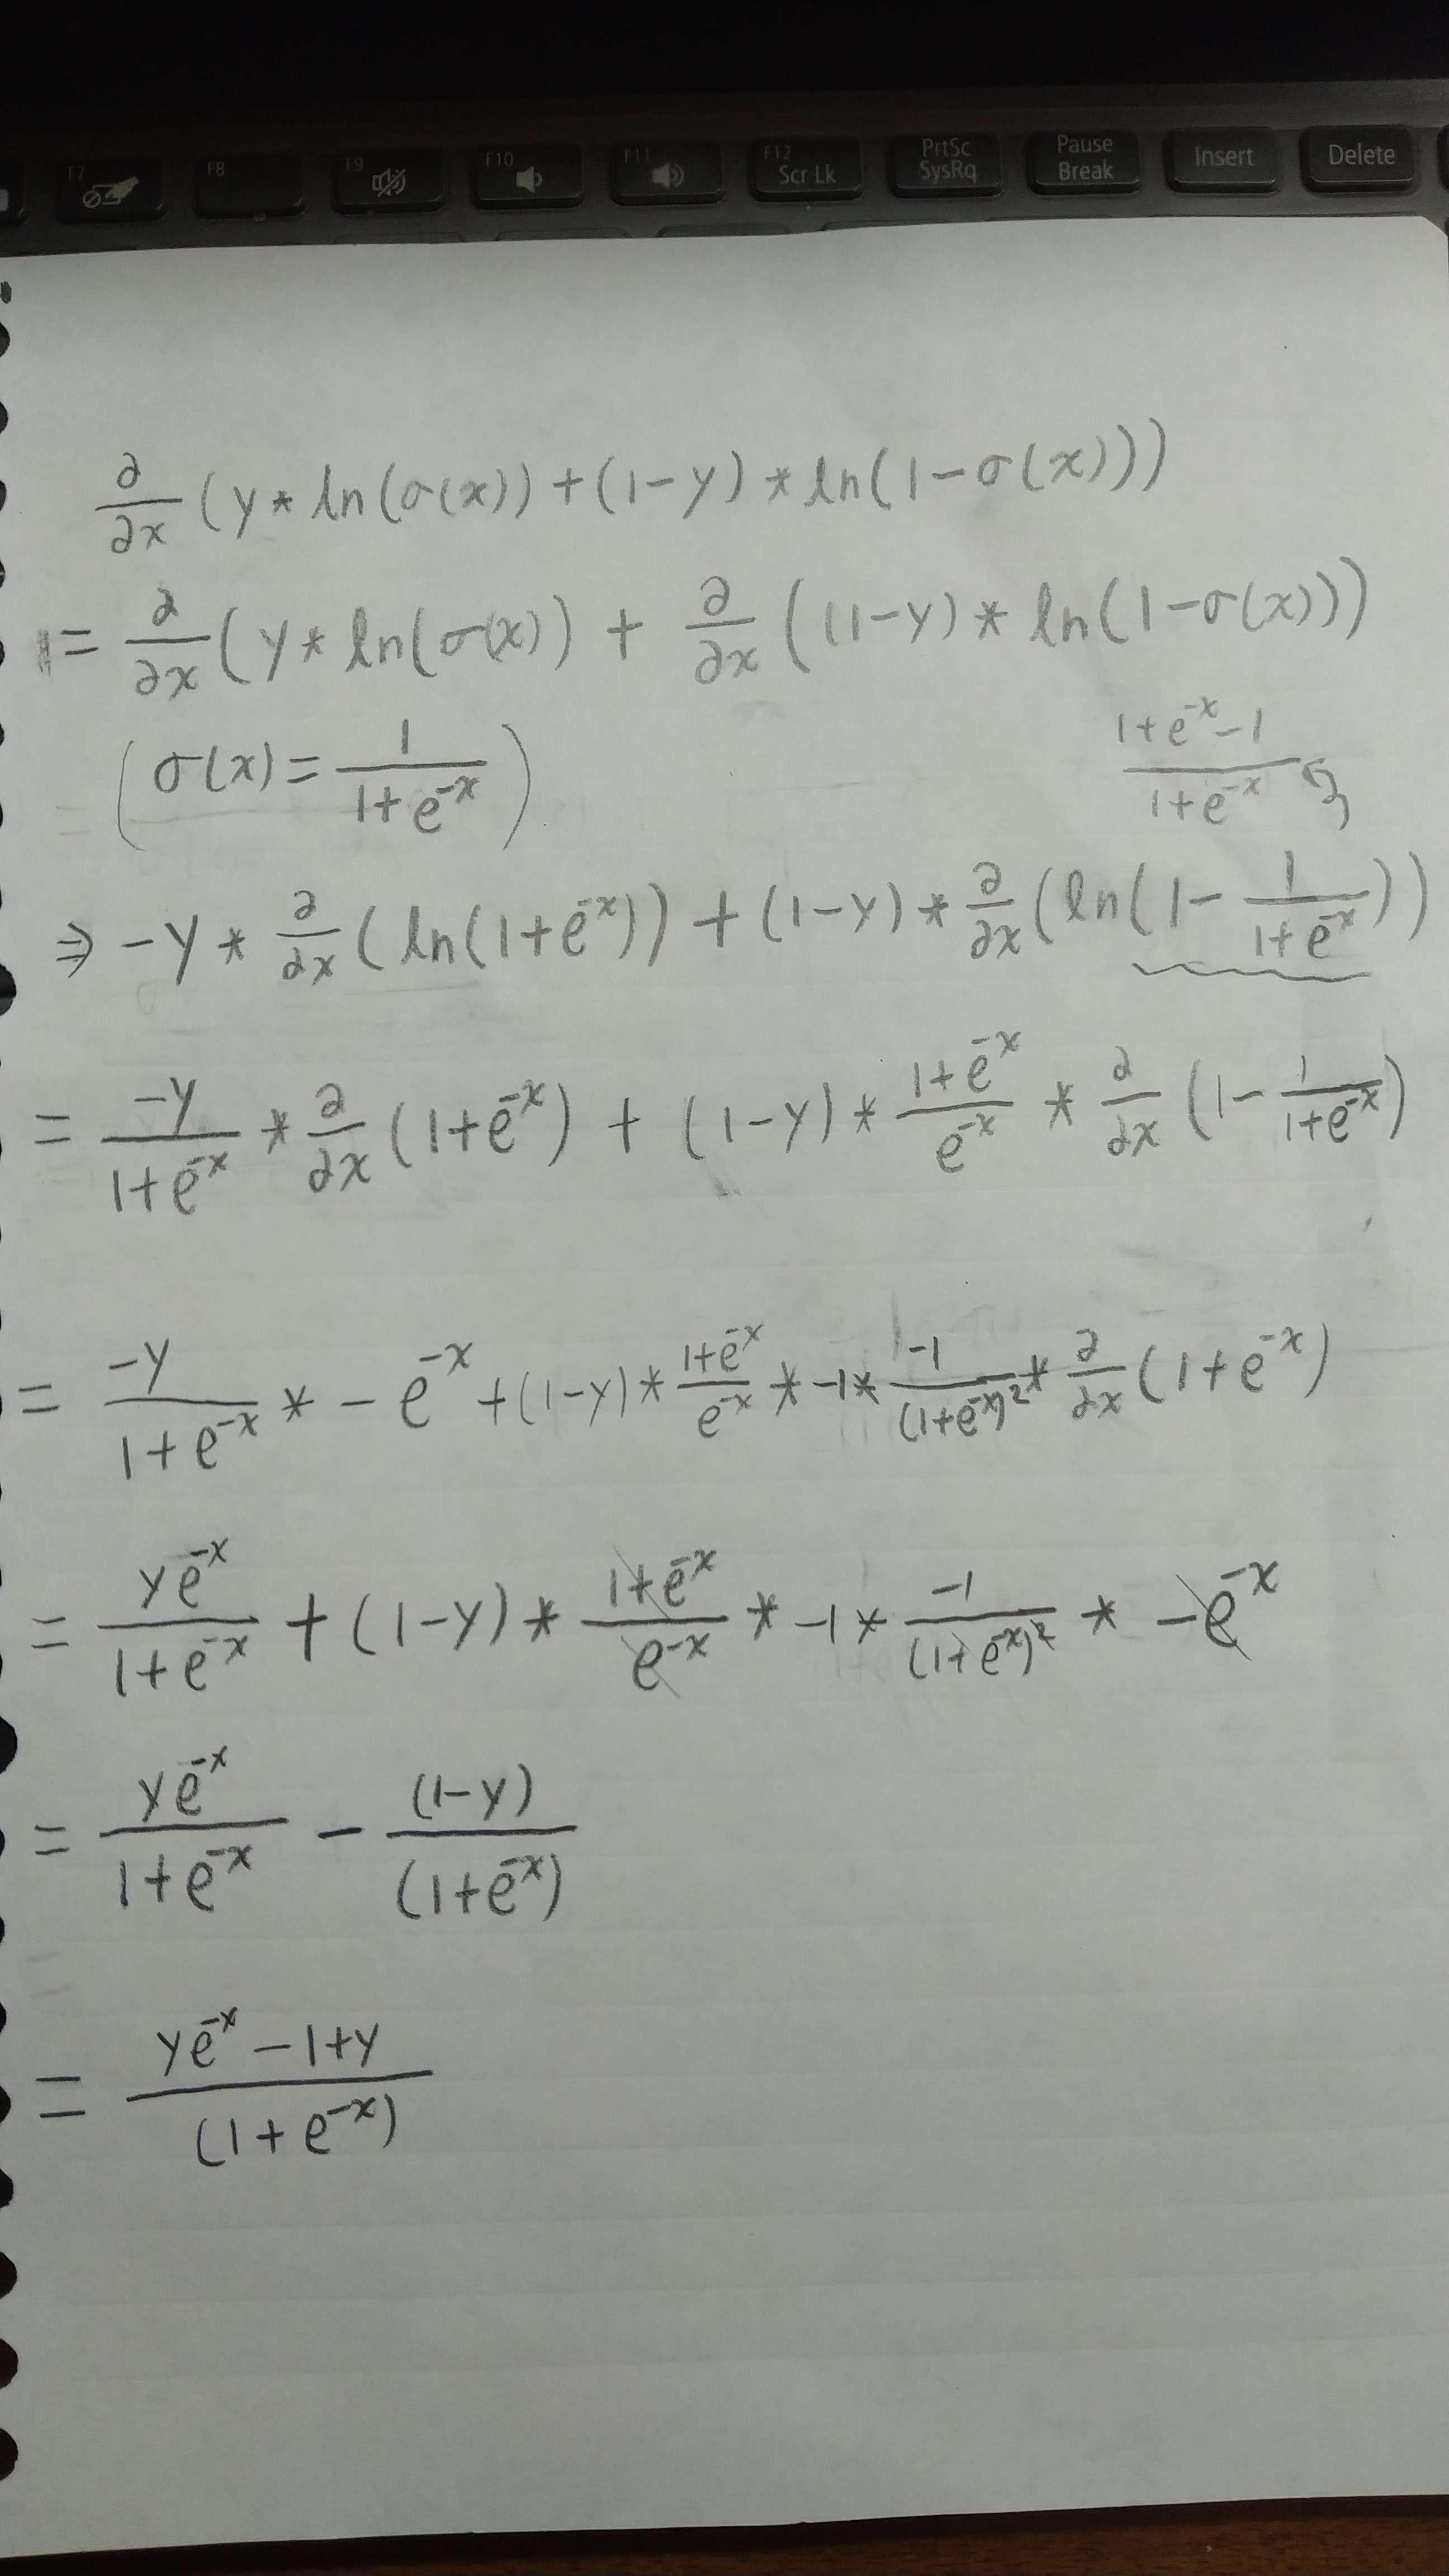 F7 F8 F9 F10 F11 F12 Scr Lk PrtSc SysRq Pause Break Insert Delete
∂/∂x (y * ln(σ(x)) + (1-y) * ln(1-σ(x)))
= ∂/∂x (y * ln(σ(x)) + ∂/∂x ((1-y) * ln(1-σ(x)))
(σ(x) = 1/(1+e^-x)) (1+e^-x-1)/(1+e^-x)
⇒ -y * ∂/∂x (ln(1+e^-x)) + (1-y) * ∂/∂x (ln(1 - 1/(1+e^-x)))
= -y/(1+e^-x) * ∂/∂x (1+e^-x) + (1-y) * (1+e^-x)/e^-x * ∂/∂x (1 - 1/(1+e^-x))
= -y/(1+e^-x) * -e^-x + (1-y) * (1+e^-x)/e^-x * -1 * -1/(1+e^-x)^2 * ∂/∂x (1+e^-x)
= ye^-x/(1+e^-x) + (1-y) * (1+e^-x)/e^-x * -1 * -1/(1+e^-x)^2 * -e^-x
= ye^-x/(1+e^-x) - (1-y)/(1+e^-x)
= (ye^-x - 1 + y)/(1+e^-x)